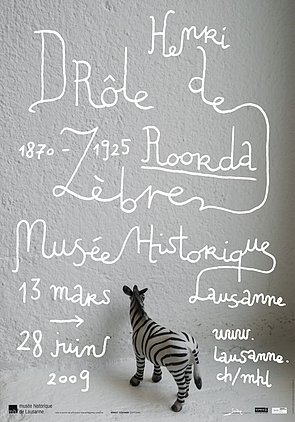 Henri
Drôle de
1870 - 1925 Roorda
Zèbre
Musée Historique
13 mars Lausanne
→
28 juin www.
lausanne.
2009 ch/mhl
musée historique
de Lausanne